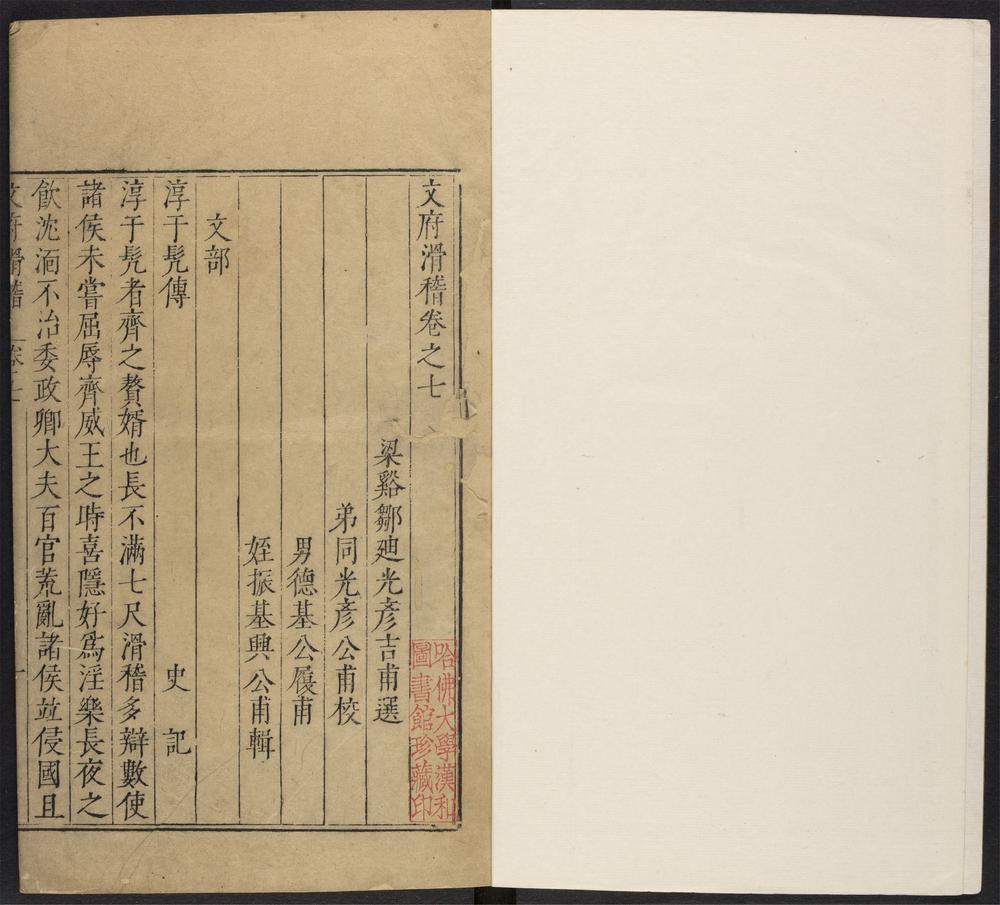 文府滑稽卷之七
梁谿鄒廸光彥吉甫選
弟同光彥公甫校
男德基公履甫
姪振基興公甫輯
文部
淳于髡傳 史記
淳于髡者齊之贅婿也長不滿七尺滑稽多辯數使
諸侯未嘗屈辱齊威王之時喜隱好爲淫樂長夜之
飮沈湎不治委政卿大夫百官荒亂諸侯竝侵國且
文府滑稽
哈佛大學漢和
圖書館珍藏印